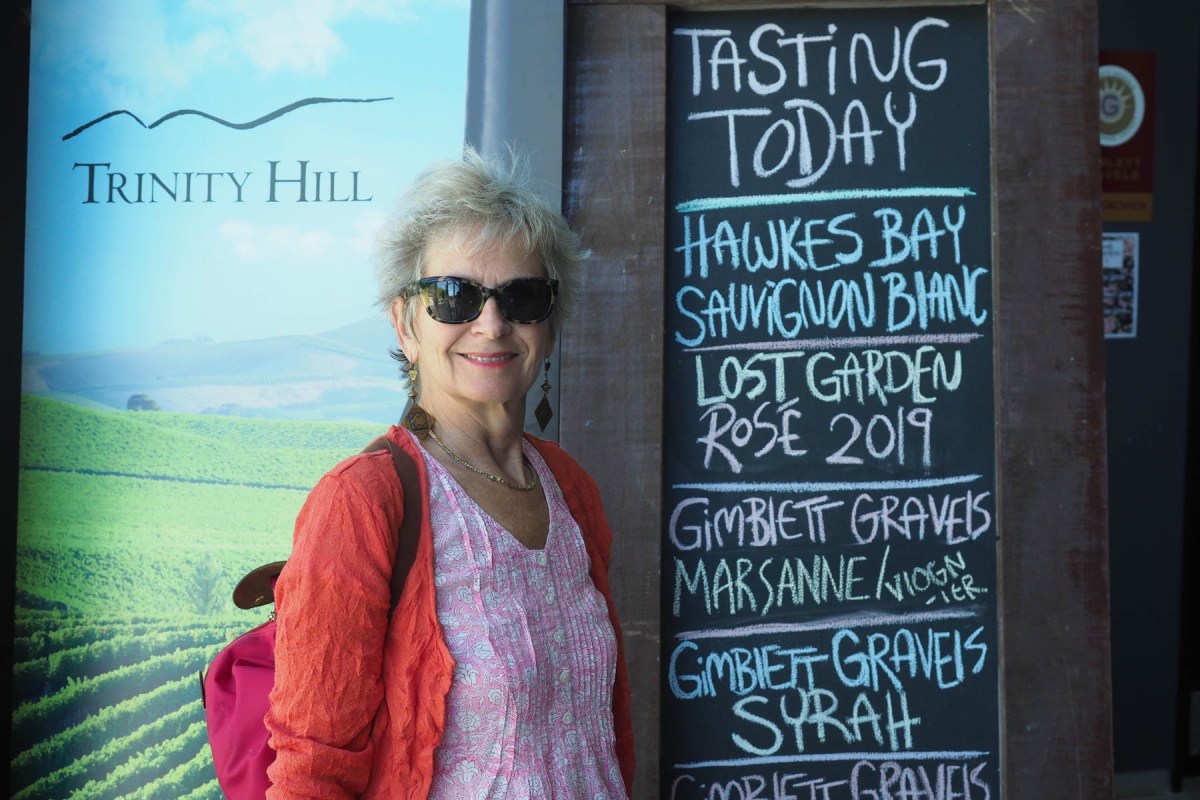 TRINITY HILL
TASTING
TODAY
HAWKES BAY
SAUVIGNON BLANC
LOST GARDEN
ROSÉ 2019
GIMBLETT GRAVELS
MARSANNE/VIOGN
-IER.
GIMBLETT GRAVELS
SYRAH
GIMBLETT GRAVELS
G